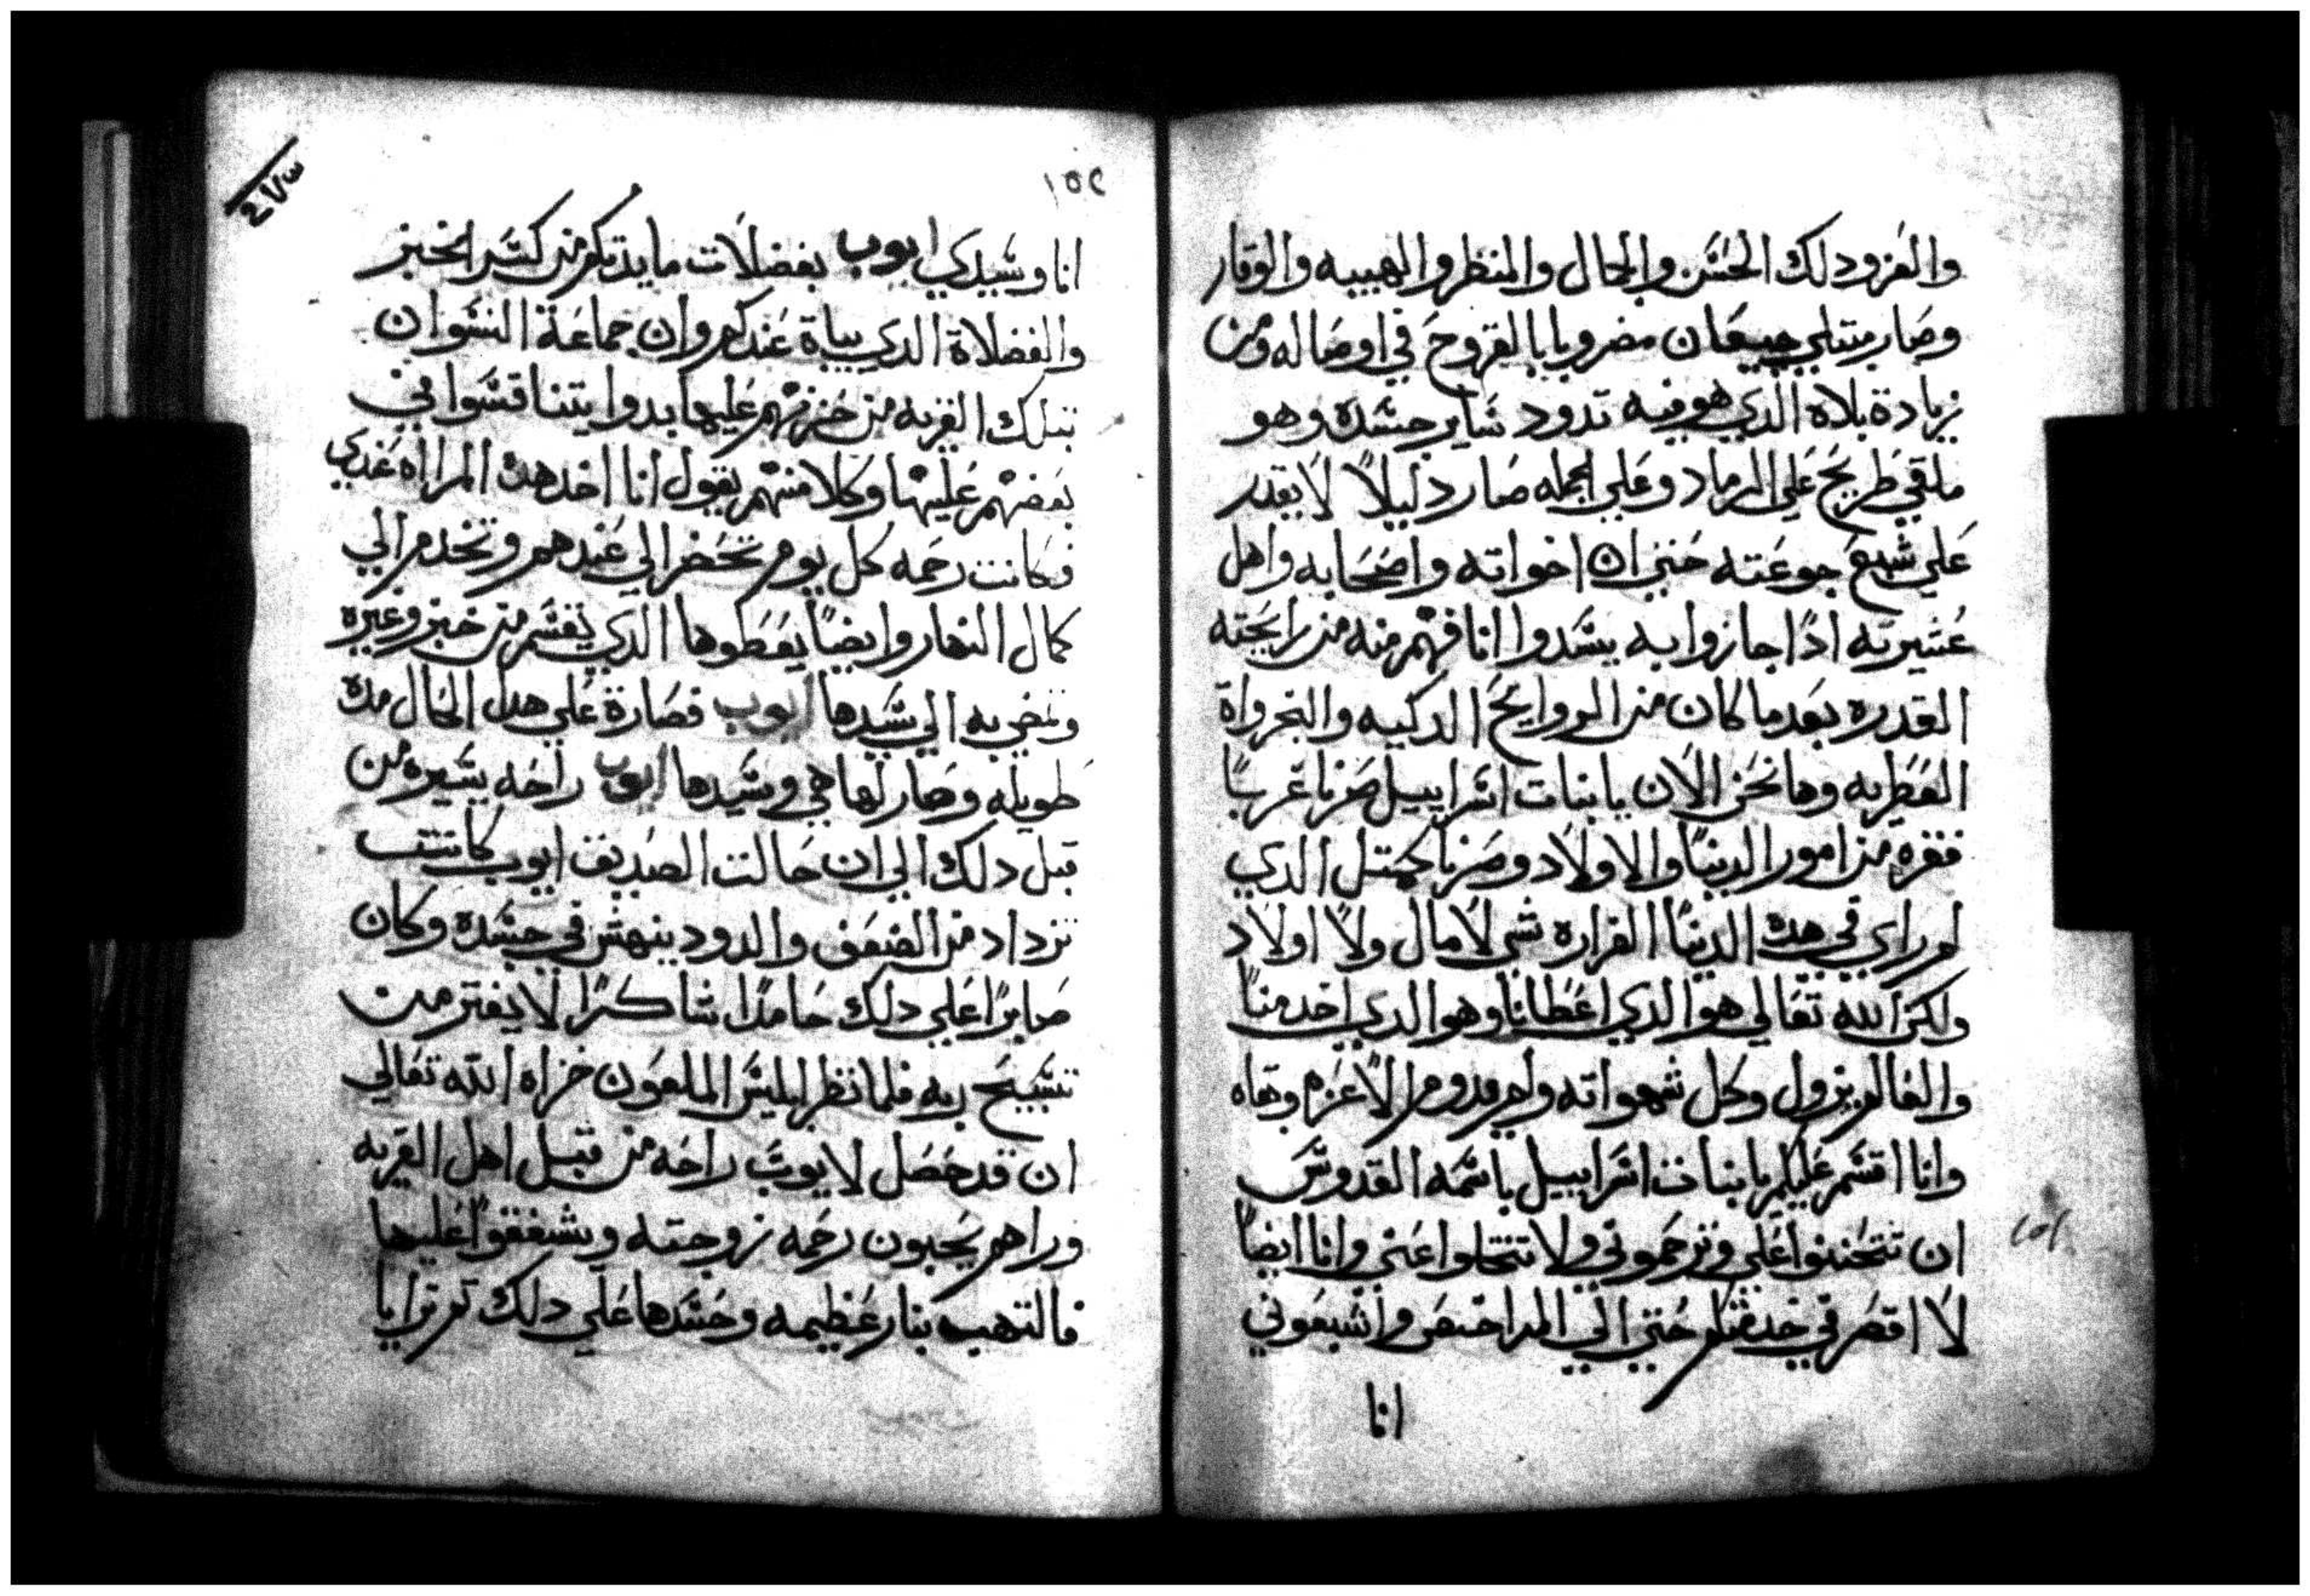 والعز ودلك الحسن والجمال والمنظر والهيبه والوقار
وصار مبتلي جيعان مضروبا بالقروح في اوصاله ومن
زيادة بلاه الدي هو فيه تدود ساير جسده وهو
ملقي طريح علي الرماد وعلي الجمله صار دليلاً لا يقدر
علي شبع جوعته حتي ان اخواته واصحابه واهل
عشيرته ادا جازوا به يسدوا انافهم منه من رايحته
القدره بعدما كان من الروايح الدكيه والبخرواة
العطريه وها نحن الان يا بنات اسراييل صرنا غربا
فقره من امور الدنيا والاولاد وصرنا كمتل الدي
لم راي في هده الدنيا الغراره شي لا مال ولا اولاد
ولكن الله تعالي هو الدي اعطانا وهو الدي اخد منا
والعالم يزول وكل شهواته ولم يدوم الا عزه وبقاه
وانا اقسم عليكم يا بنات اسراييل باسمه القدوس
ان تتحننوا علي وترحموني ولا تتخلوا عني وانا ايضا
لا اقصر في خدمتكم حتي الي المراحيض واشبعوني
انا
١٥٢
انا وسيدي ايوب بفضلات ما يدتكم من كسر الخبز
والفضلاة الدي يباة عندكم وان جماعة النسوان
بتلك القريه من حزنهم عليها بدوا يتناقسوا في
بعضهم عليها وكلا منهم يقول انا اخد هده المراه عندي
فكانت رحمه كل يوم تحضر الي عندهم وتخدم الي
كمال النهار وايضاً يعطوها الدي يقسم من خبز وغيره
وتمضي به الي سيدها ايوب فصارة علي هدا الحال مده
طويله وصار لها هي وسيدها ايوب راحه يسيره من
قبل دلك الي ان حالت الصديق ايوب كانت
تزداد من الضعف والدود ينهش في جسده وكان
صابراً علي دلك حامداً شاكراً لا يفتر من
تسبيح ربه فلما نظر ابليس الملعون خزاه الله تعالي
ان قد حصل لايوب راحه من قبل اهل القريه
وراهم يحبون رحمه زوجته ويشفقوا عليها
فالتهب بنار عظيمه وحسدها علي دلك تم ترايا